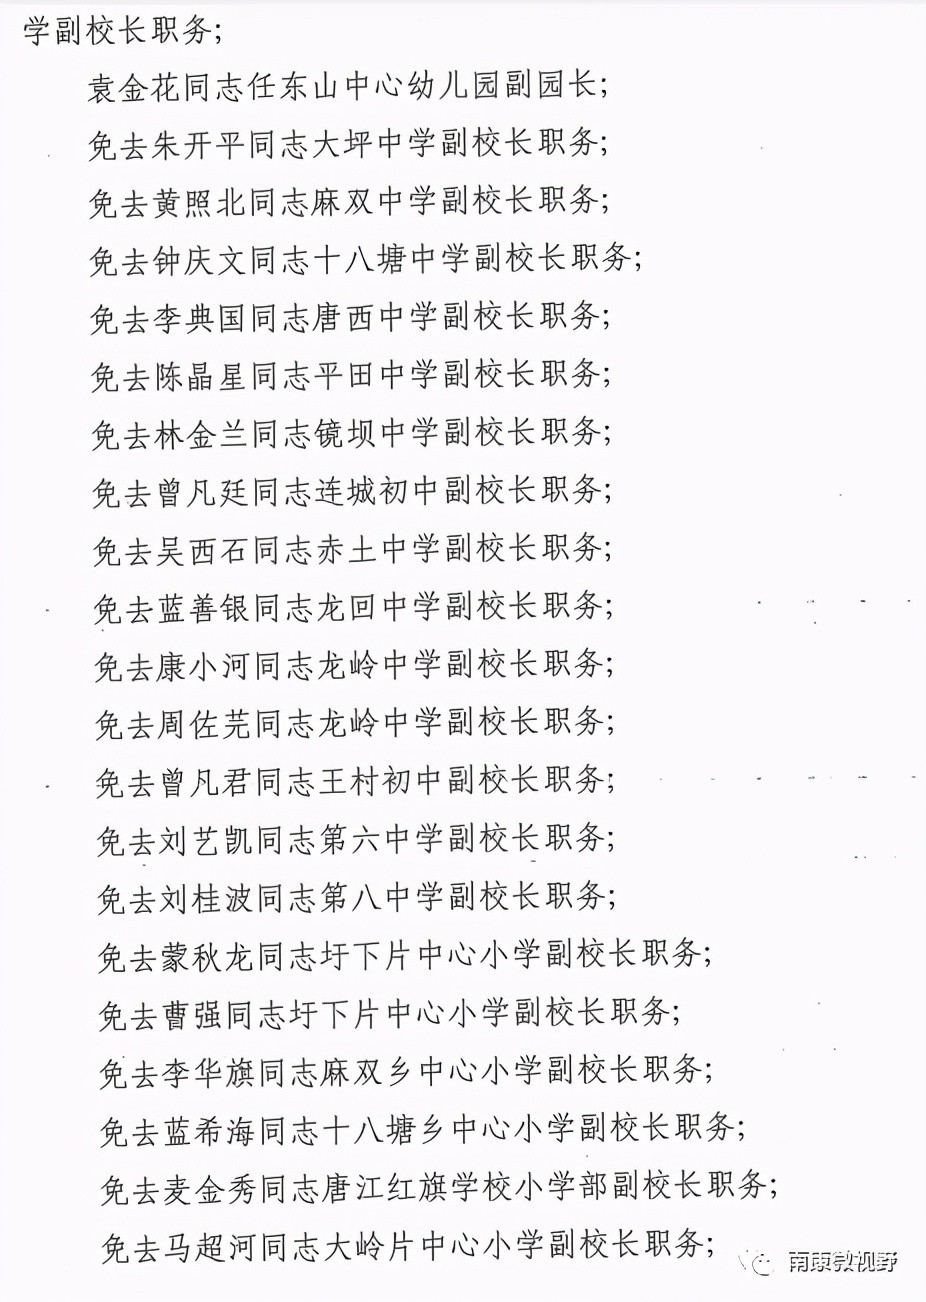 学副校长职务;
袁金花同志任东山中心幼儿园副园长;
免去朱开平同志大坪中学副校长职务;
免去黄照北同志麻双中学副校长职务;
免去钟庆文同志十八塘中学副校长职务;
免去李典国同志唐西中学副校长职务;
免去陈晶星同志平田中学副校长职务;
免去林金兰同志镜坝中学副校长职务;
免去曾凡廷同志连城初中副校长职务;
免去吴西石同志赤土中学副校长职务;
免去蓝善银同志龙回中学副校长职务;
免去康小河同志龙岭中学副校长职务;
免去周佐芫同志龙岭中学副校长职务;
免去曾凡君同志王村初中副校长职务;
免去刘艺凯同志第六中学副校长职务;
免去刘桂波同志第八中学副校长职务;
免去蒙秋龙同志圩下片中心小学副校长职务;
免去曹强同志圩下片中心小学副校长职务;
免去李华旗同志麻双乡中心小学副校长职务;
免去蓝希海同志十八塘乡中心小学副校长职务;
免去麦金秀同志唐江红旗学校小学部副校长职务;
免去马超河同志大岭片中心小学副校长职务;
南康微视野